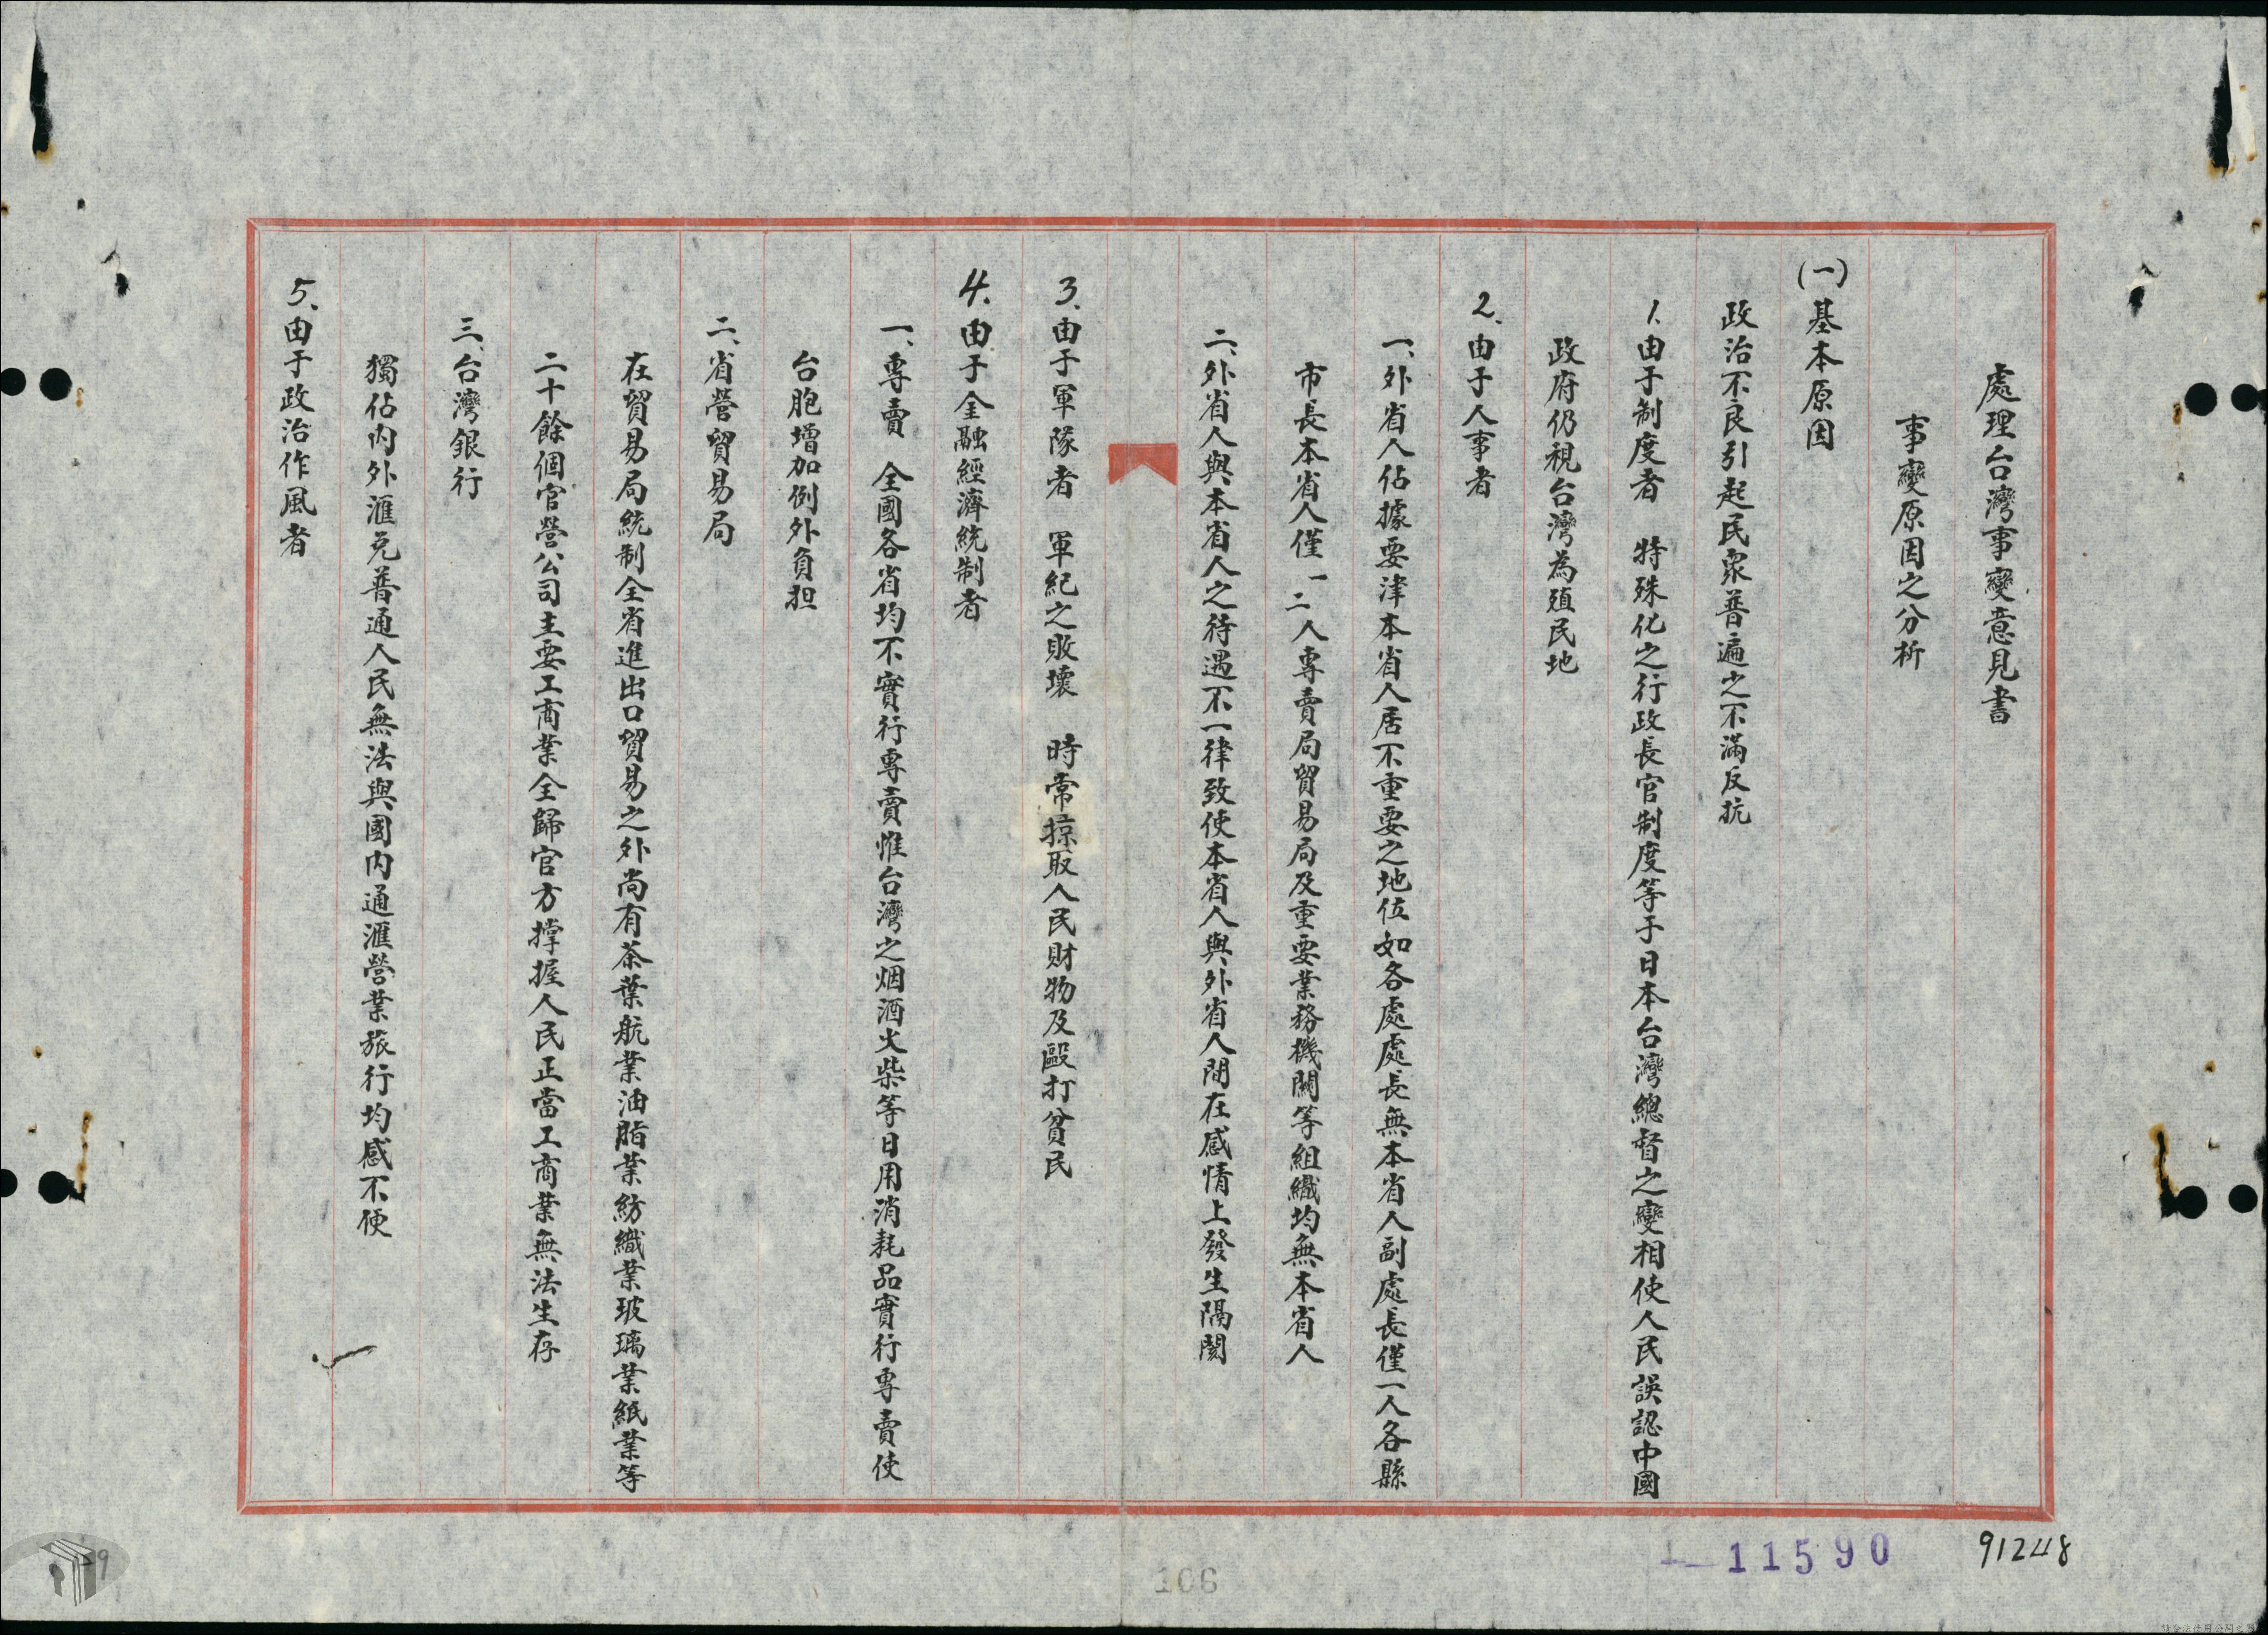 處理台灣事變意見書
事變原因之分析
(一)基本原因
政治不良引起民衆普遍之不滿反抗
1.由于制度者 特殊化之行政長官制度等于日本台灣總督之變相使人民誤認中國
政府仍視台灣為殖民地
2.由于人事者
一、外省人佔據要津本省人居不重要之地位如各處處長無本省人副處長僅一人各縣
市長本省人僅一二人專賣局貿易局及重要業務機關等組織均無本省人
二、外省人與本省人之待遇不一律致使本省人與外省人間在感情上發生隔閡
3.由于軍隊者 軍紀之敗壞 時常掠取人民財物及毆打貧民
4.由于金融經濟統制者
一、專賣 全國各省均不實行專賣惟台灣之烟酒火柴等日用消耗品實行專賣使
台胞增加例外負担
二、省營貿易局
在貿易局統制全省進出口貿易之外尚有茶葉航業油脂業紡織業玻璃業紙業等
二十餘個官營公司主要工商業全歸官方撑握人民正當工商業無法生存
三、台灣銀行
獨佔內外滙兌普通人民無法與國內通滙營業旅行均感不便
5.由于政治作風者
11590
91248
106
9